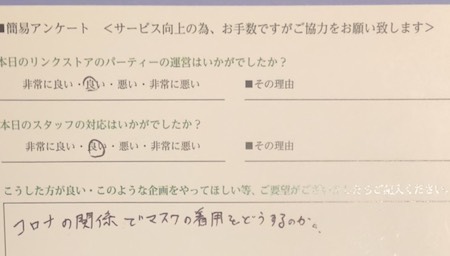 ■簡易アンケート ＜サービス向上の為、お手数ですがご協力をお願い致します＞
本日のリンクストアのパーティーの運営はいかがでしたか？
非常に良い・良い・悪い・非常に悪い ■その理由
本日のスタッフの対応はいかがでしたか？
非常に良い・良い・悪い・非常に悪い ■その理由
こうした方が良い・このような企画をやってほしい等、ご要望がございましたらご記入ください
コロナの関係でマスクの着用をどうするのか。